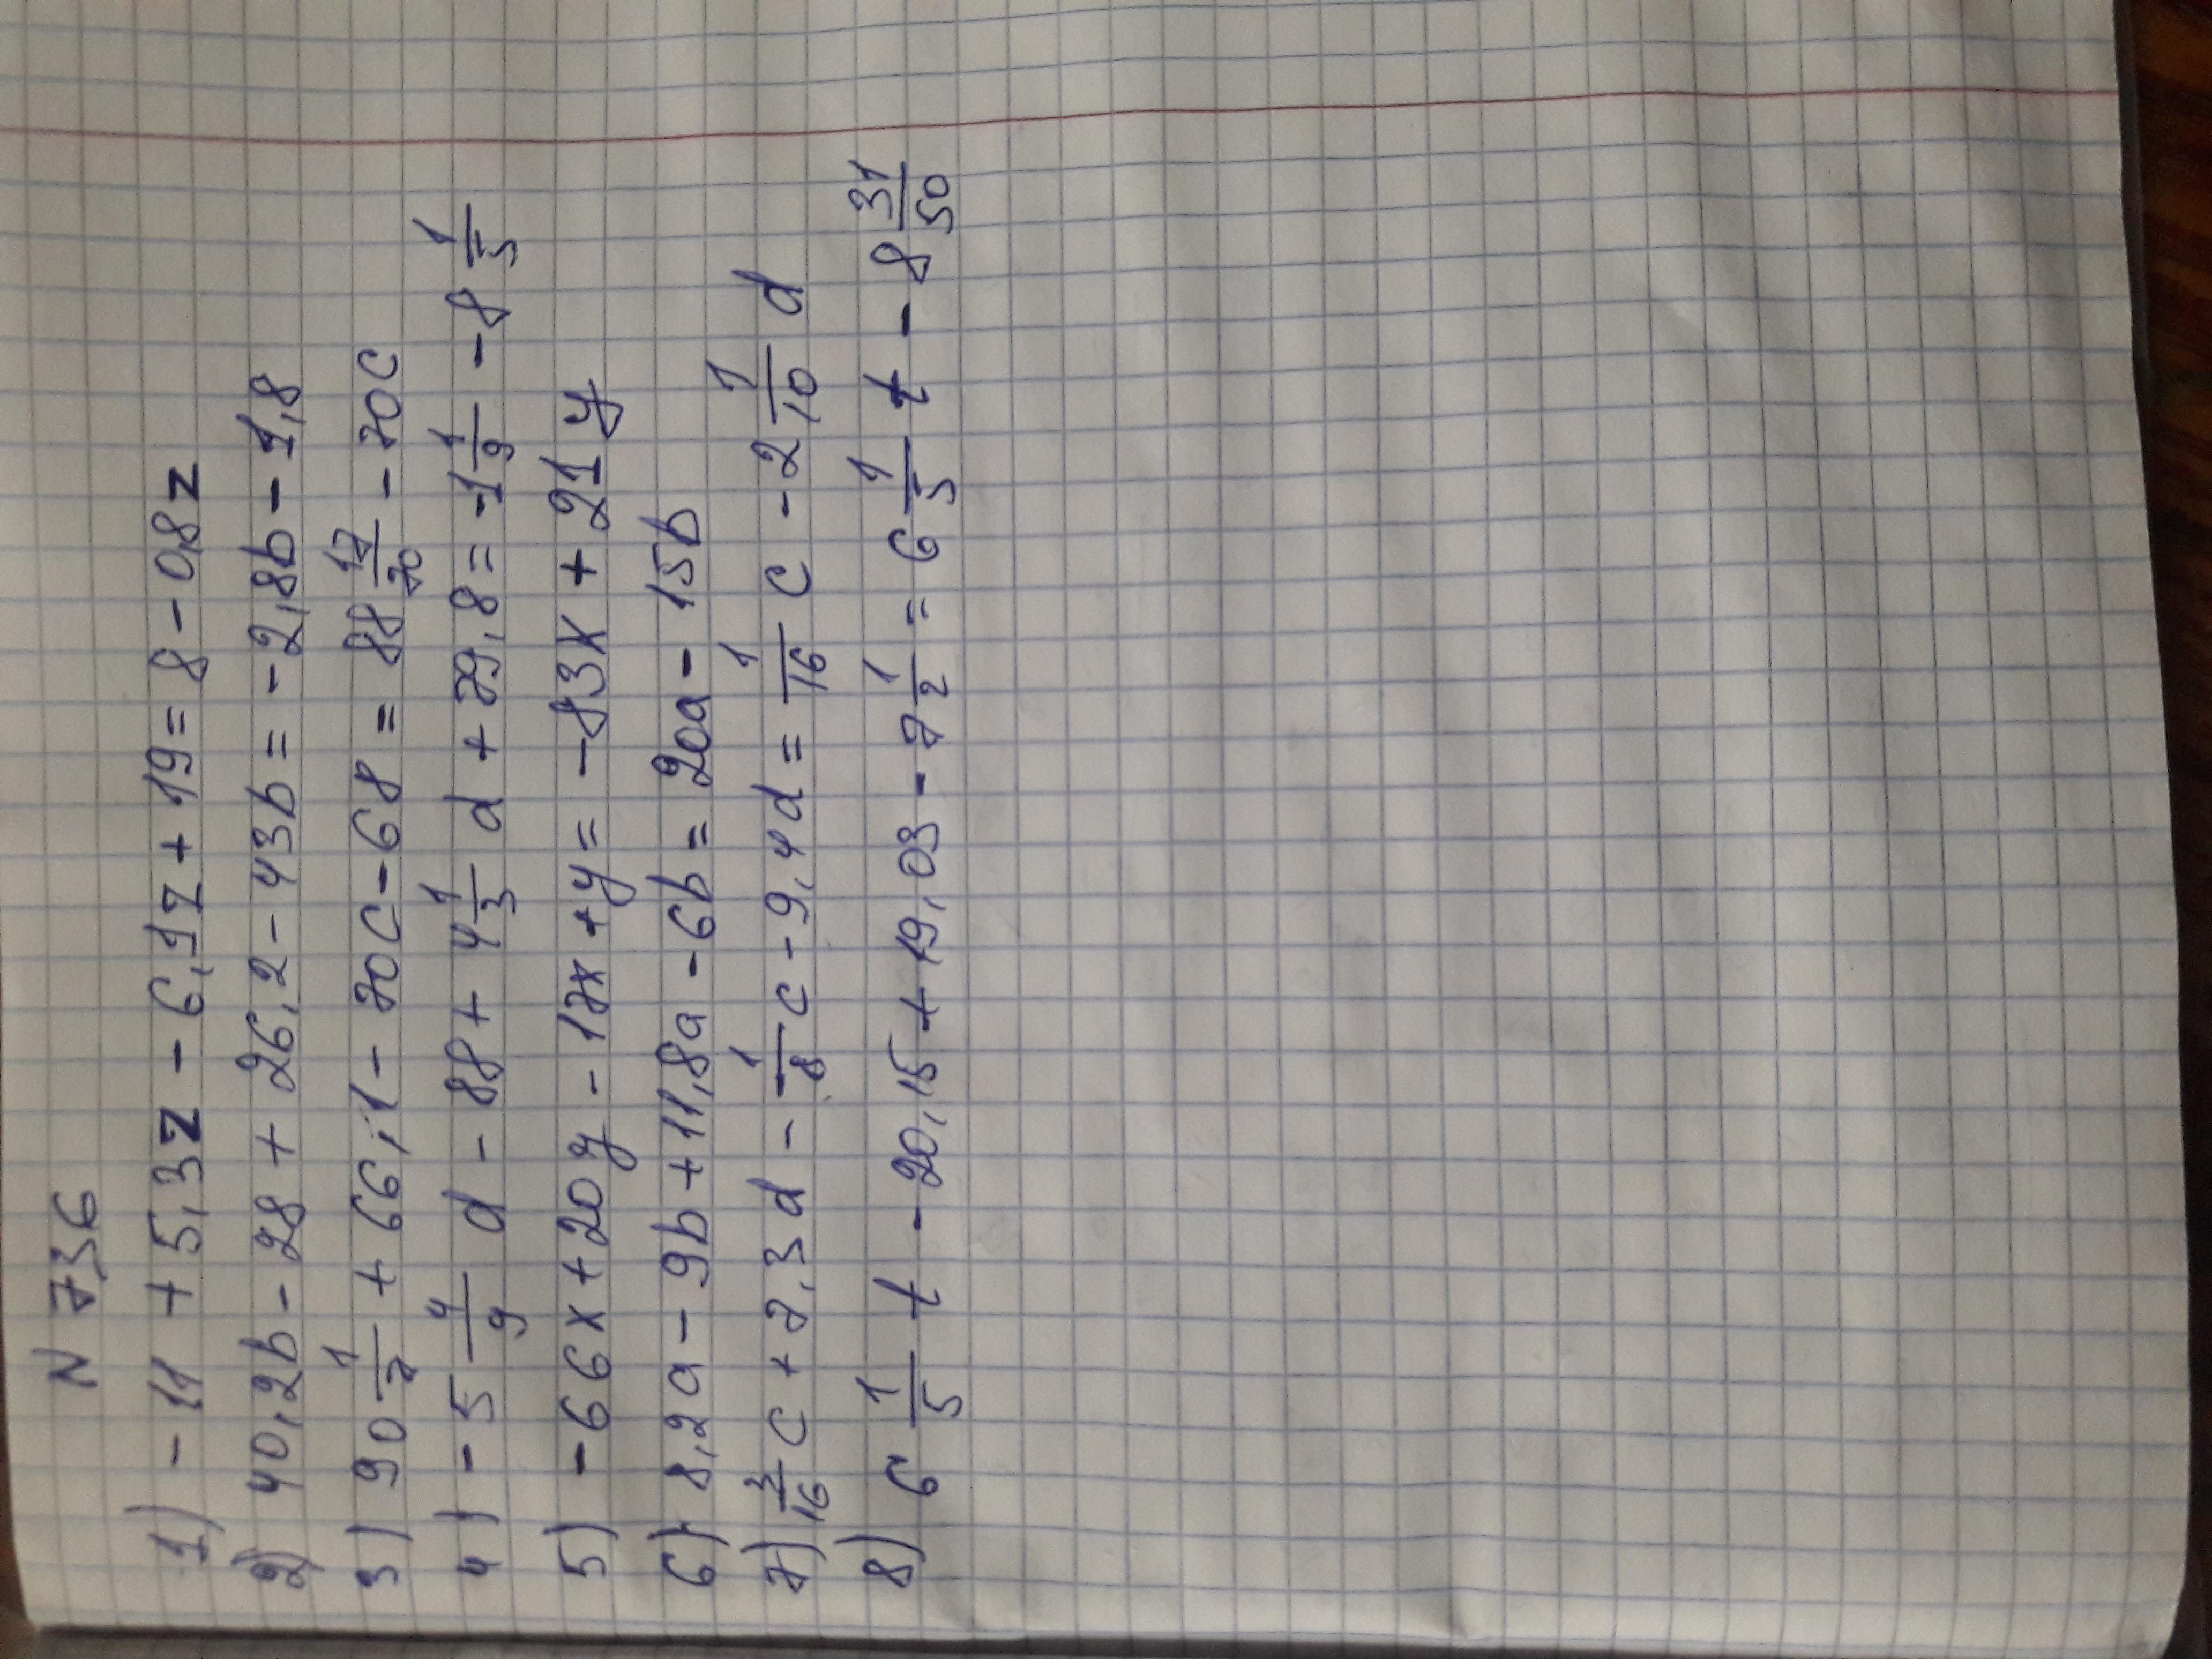 N 736
1) - 11 + 5,3z - 6,1z + 19 = 8 - 0,8z
2) 40,2b - 28 + 26,2 - 43b = - 2,8b - 1,8
3) 90 1/7 + 66,1 - 70c - 68 = 88 17/70 - 70c
4) - 5 4/9 d - 88 + 4 1/3 d + 79,8 = -1 1/9 - 8 1/5
5) - 66x + 20y - 17x + y = - 83x + 21y
6) 8,2a - 9b + 11,8a - 6b = 20a - 15b
7) 3/16 c + 7,3d - 1/8 c - 9,4d = 1/16 c - 2 1/10 d
8) 6 1/5 t - 20,15 + 19,03 - 7 1/2 = 6 1/5 t - 8 31/50